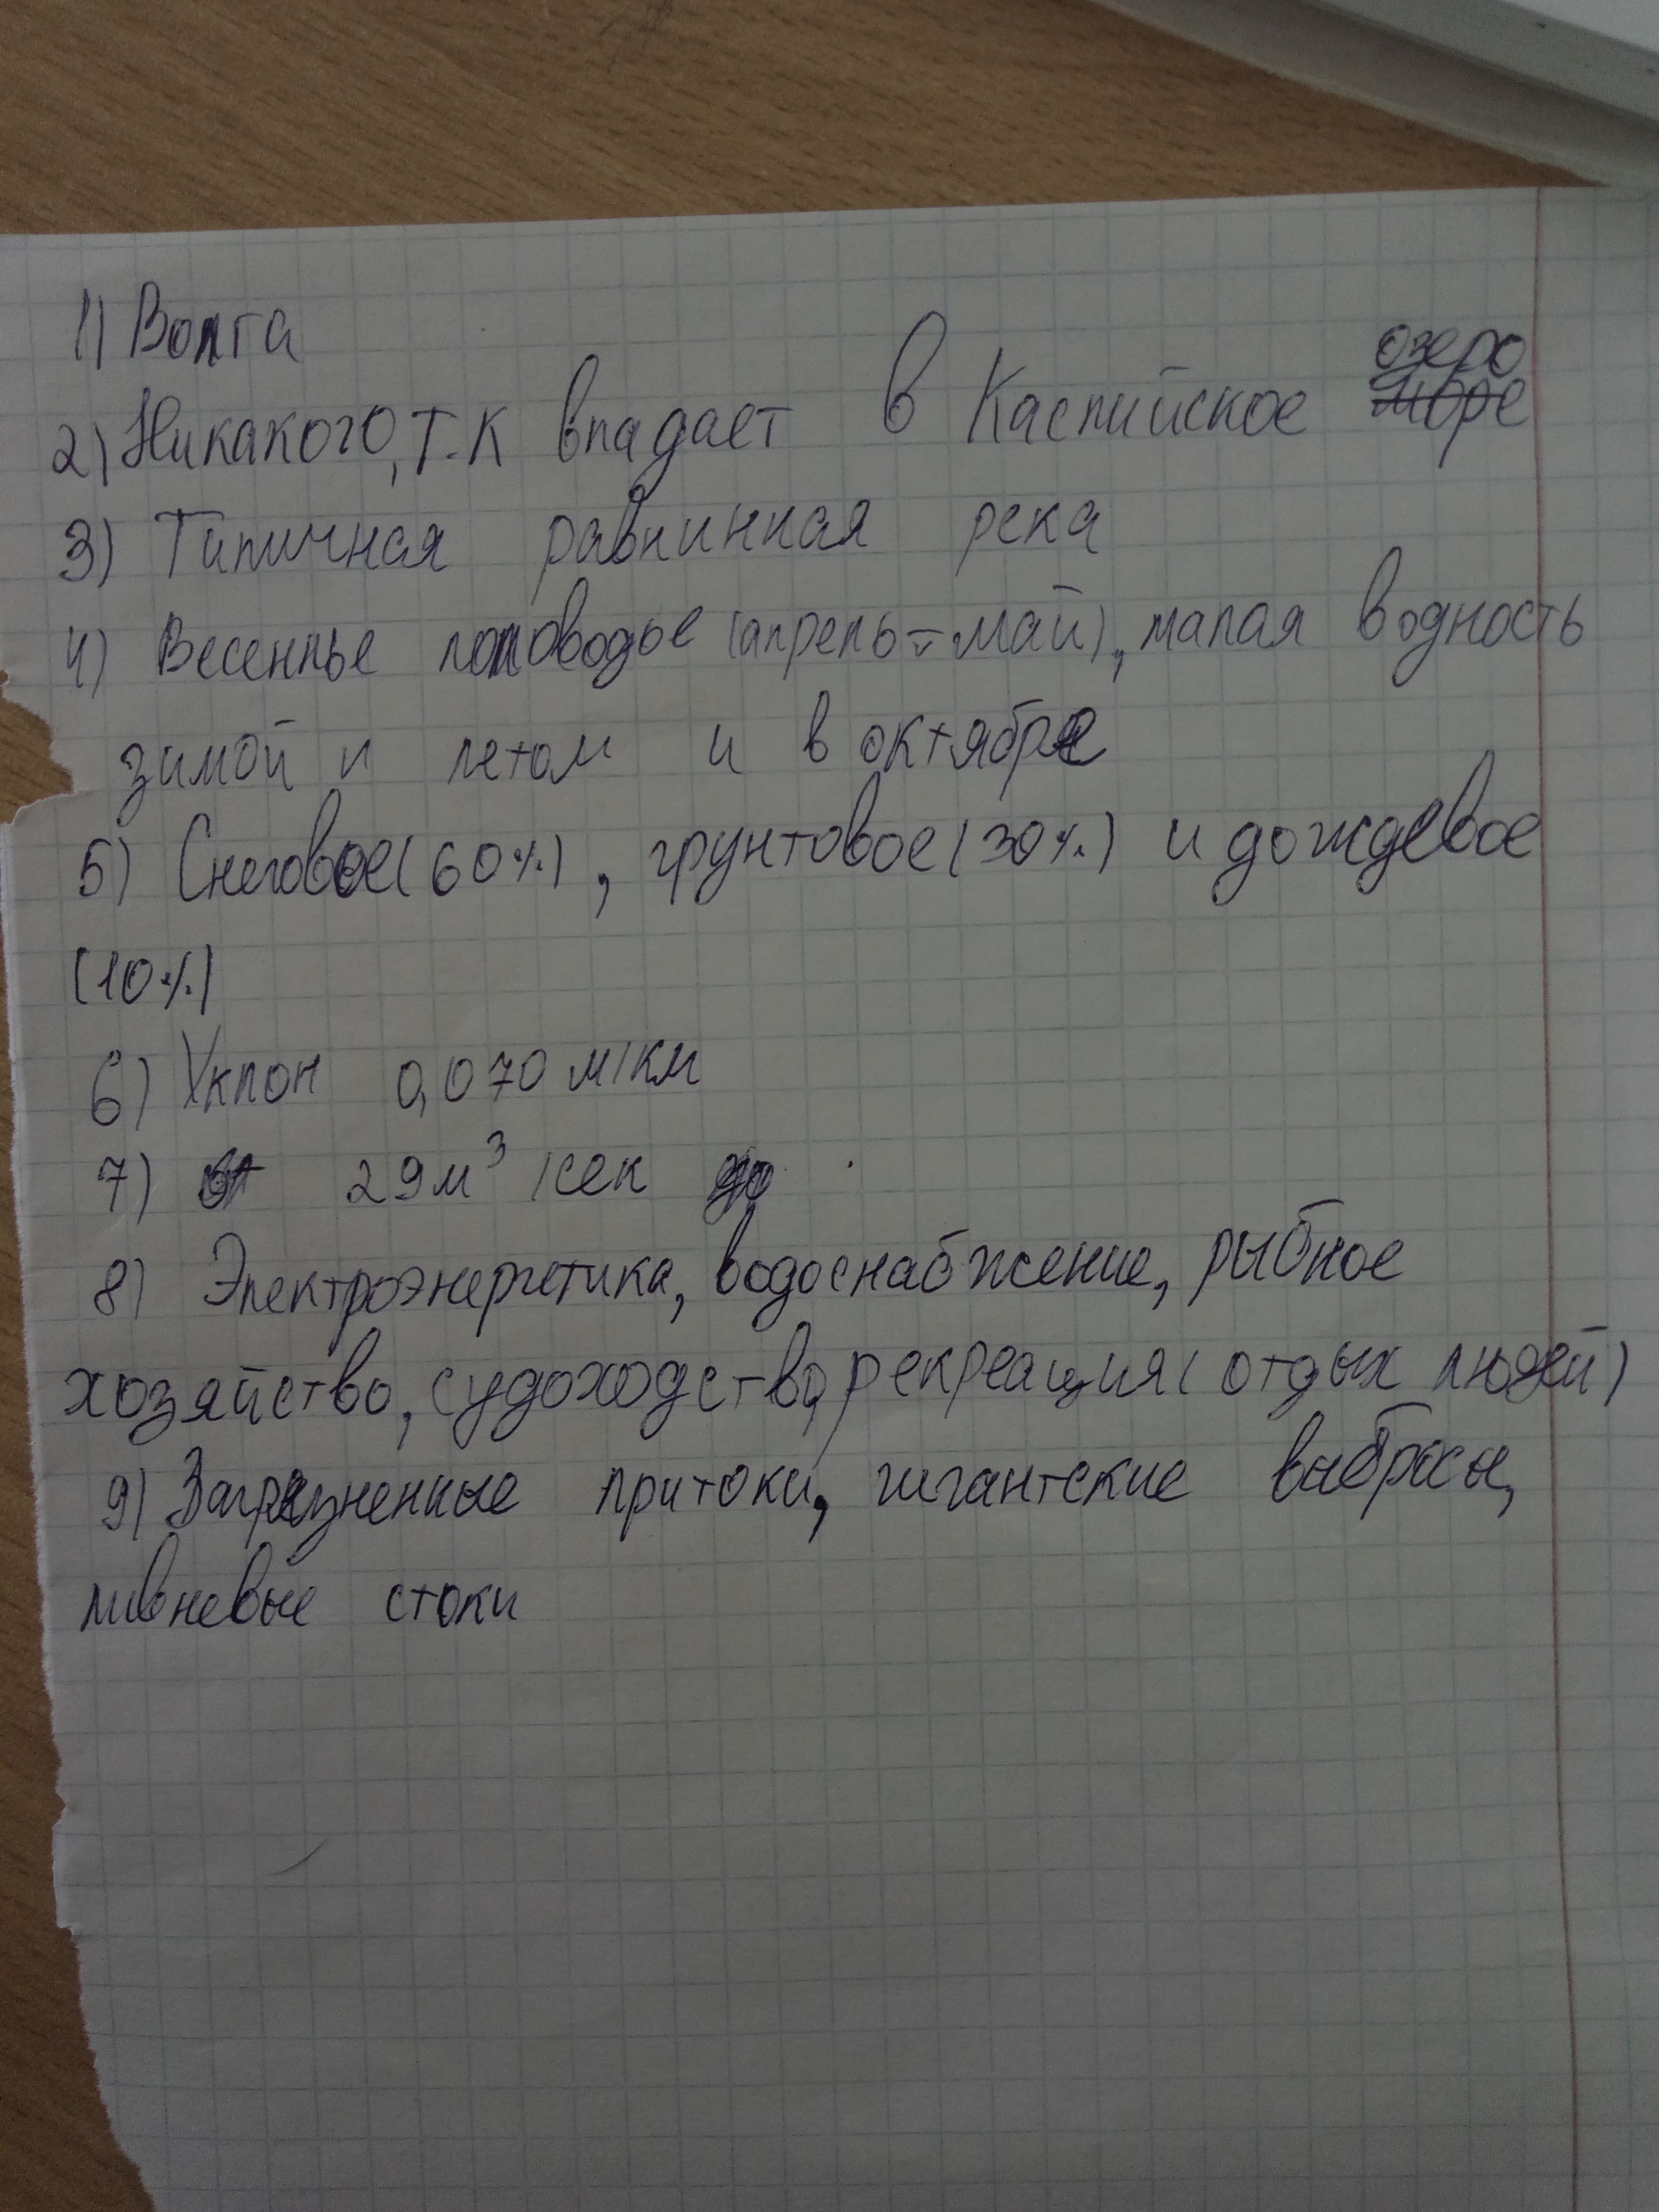 1) Волга
2) Никакого, т.к впадает в Каспийское озеро
3) Типичная равнинная река
4) Весеннье половодье (апрель-май), малая водность
зимой и летом и в октябре
5) Снеговое (60%), грунтовое (30%) и дождевое
(10%)
6) Уклон 0,070 м/км
7) 29 м³/сек
8) Электроэнергетика, водоснабжение, рыбное
хозяйство, судоходство, рекреация (отдых людей)
9) Загрязненные притоки, гигантские выбросы,
ливневые стоки